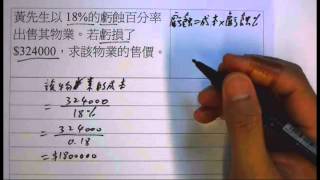 黃先生以 18%的虧蝕百分率
出售其物業。若虧損了
$324000，求該物業的售價。
虧蝕=成本×虧蝕%
該物業的成本
= 324000
18%
= 324000
0.18
=$1800000